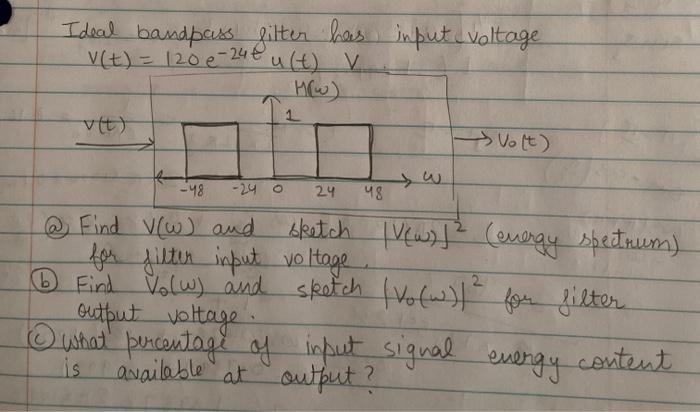 Ideal bandpass filter has input voltage
V(t) = 120 e^-24t u(t) V
H(ω)
1
V(t)
V₀(t)
-48 -24 0 24 48 ω
(a) Find V(ω) and sketch |V(ω)|² (energy spectrum)
for filter input voltage.
(b) Find V₀(ω) and sketch |V₀(ω)|² for filter
output voltage.
(c) what percentage of input signal energy content
is available at output?